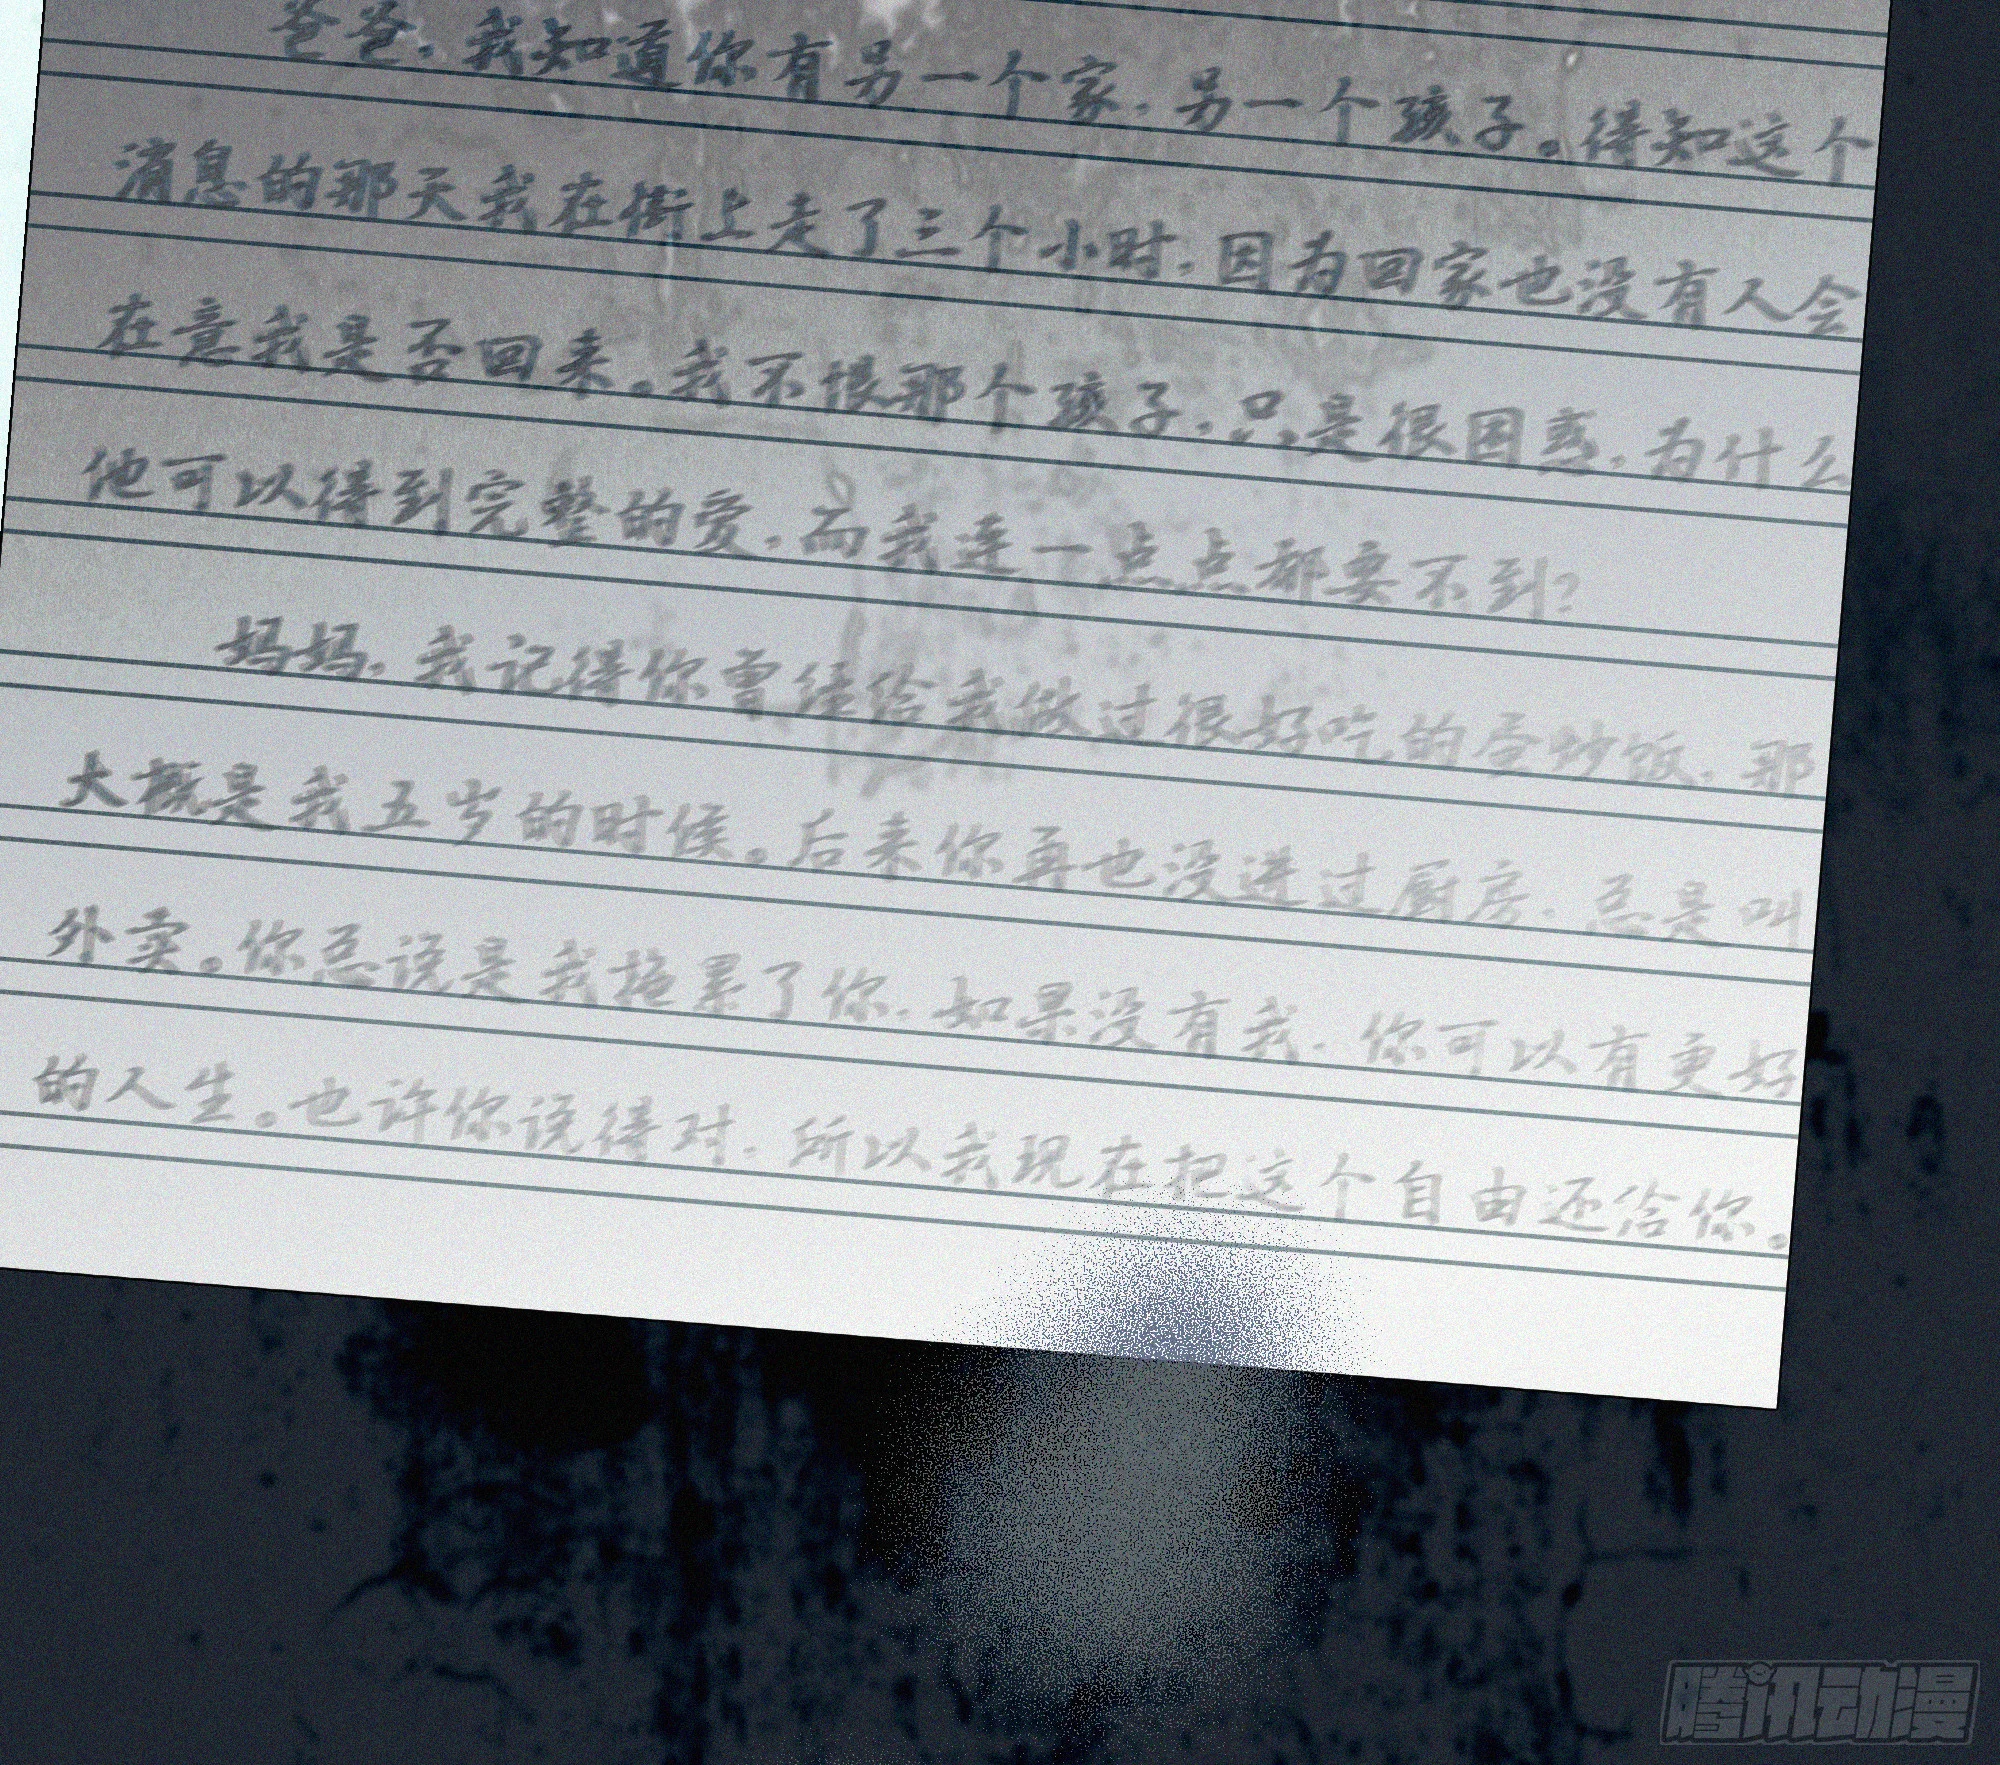 爸爸，我知道你有另一个家，另一个孩子。得知这个
消息的那天我在街上走了三个小时，因为回家也没有人会
在意我是否回来。我不恨那个孩子，只是很困惑，为什么
他可以得到完整的爱，而我连一点点都要不到？
妈妈，我记得你曾经给我做过很好吃的蛋炒饭，那
大概是我五岁的时候。后来你再也没进过厨房，总是叫
外卖。你总说是我拖累了你，如果没有我，你可以有更好
的人生。也许你说得对，所以我现在把这个自由还给你。
腾讯动漫